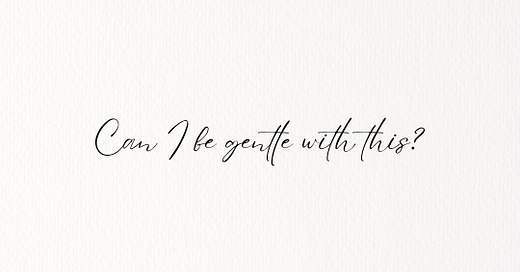 Can I be gentle with this?